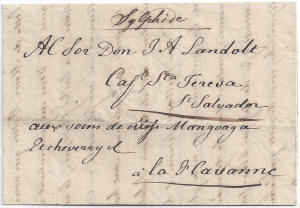 Sylphide
Al Sor Don J A Landolt
Cafl Sta Teresa
Sn Salvador
aux soins de Mangoaga
Etcheverry et
à la Havanne